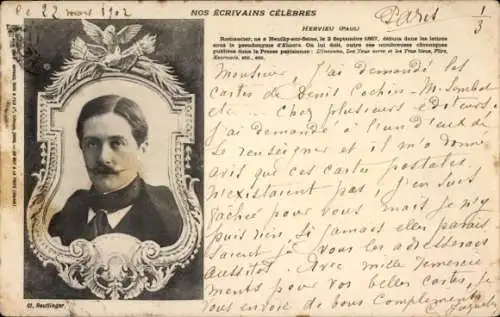 Ce 22 mars 1902
NOS ÉCRIVAINS CÉLÈBRES
Paris
1/3
HERVIEU (PAUL)
Romancier, né à Neuilly-sur-Seine, le 2 Septembre 1857, débuta dans les lettres
sous le pseudonyme d'Eliacin. On lui doit, outre ses nombreuses chroniques
publiées dans la Presse parisienne : L'Inconnu, Les Yeux verts et les Yeux bleus, Flirt,
etc., etc.
Monsieur, j'ai demandé les
cartes de Denis Cochin - M. Sembat
etc... Chez plusieurs éditeurs.
j'ai demandé à l'un d'eux de
se renseigner et il m'a donné
avis que ces cartes postales
n'existaient pas ! j'en suis
fâchée pour vous mais je n'y
puis rien si jamais elles parais
saient je vous les adresserais
aussitôt. Avec mille remercie
ments pour vos belles cartes, je
vous envoie de bons compliments
Cl. Reutlinger